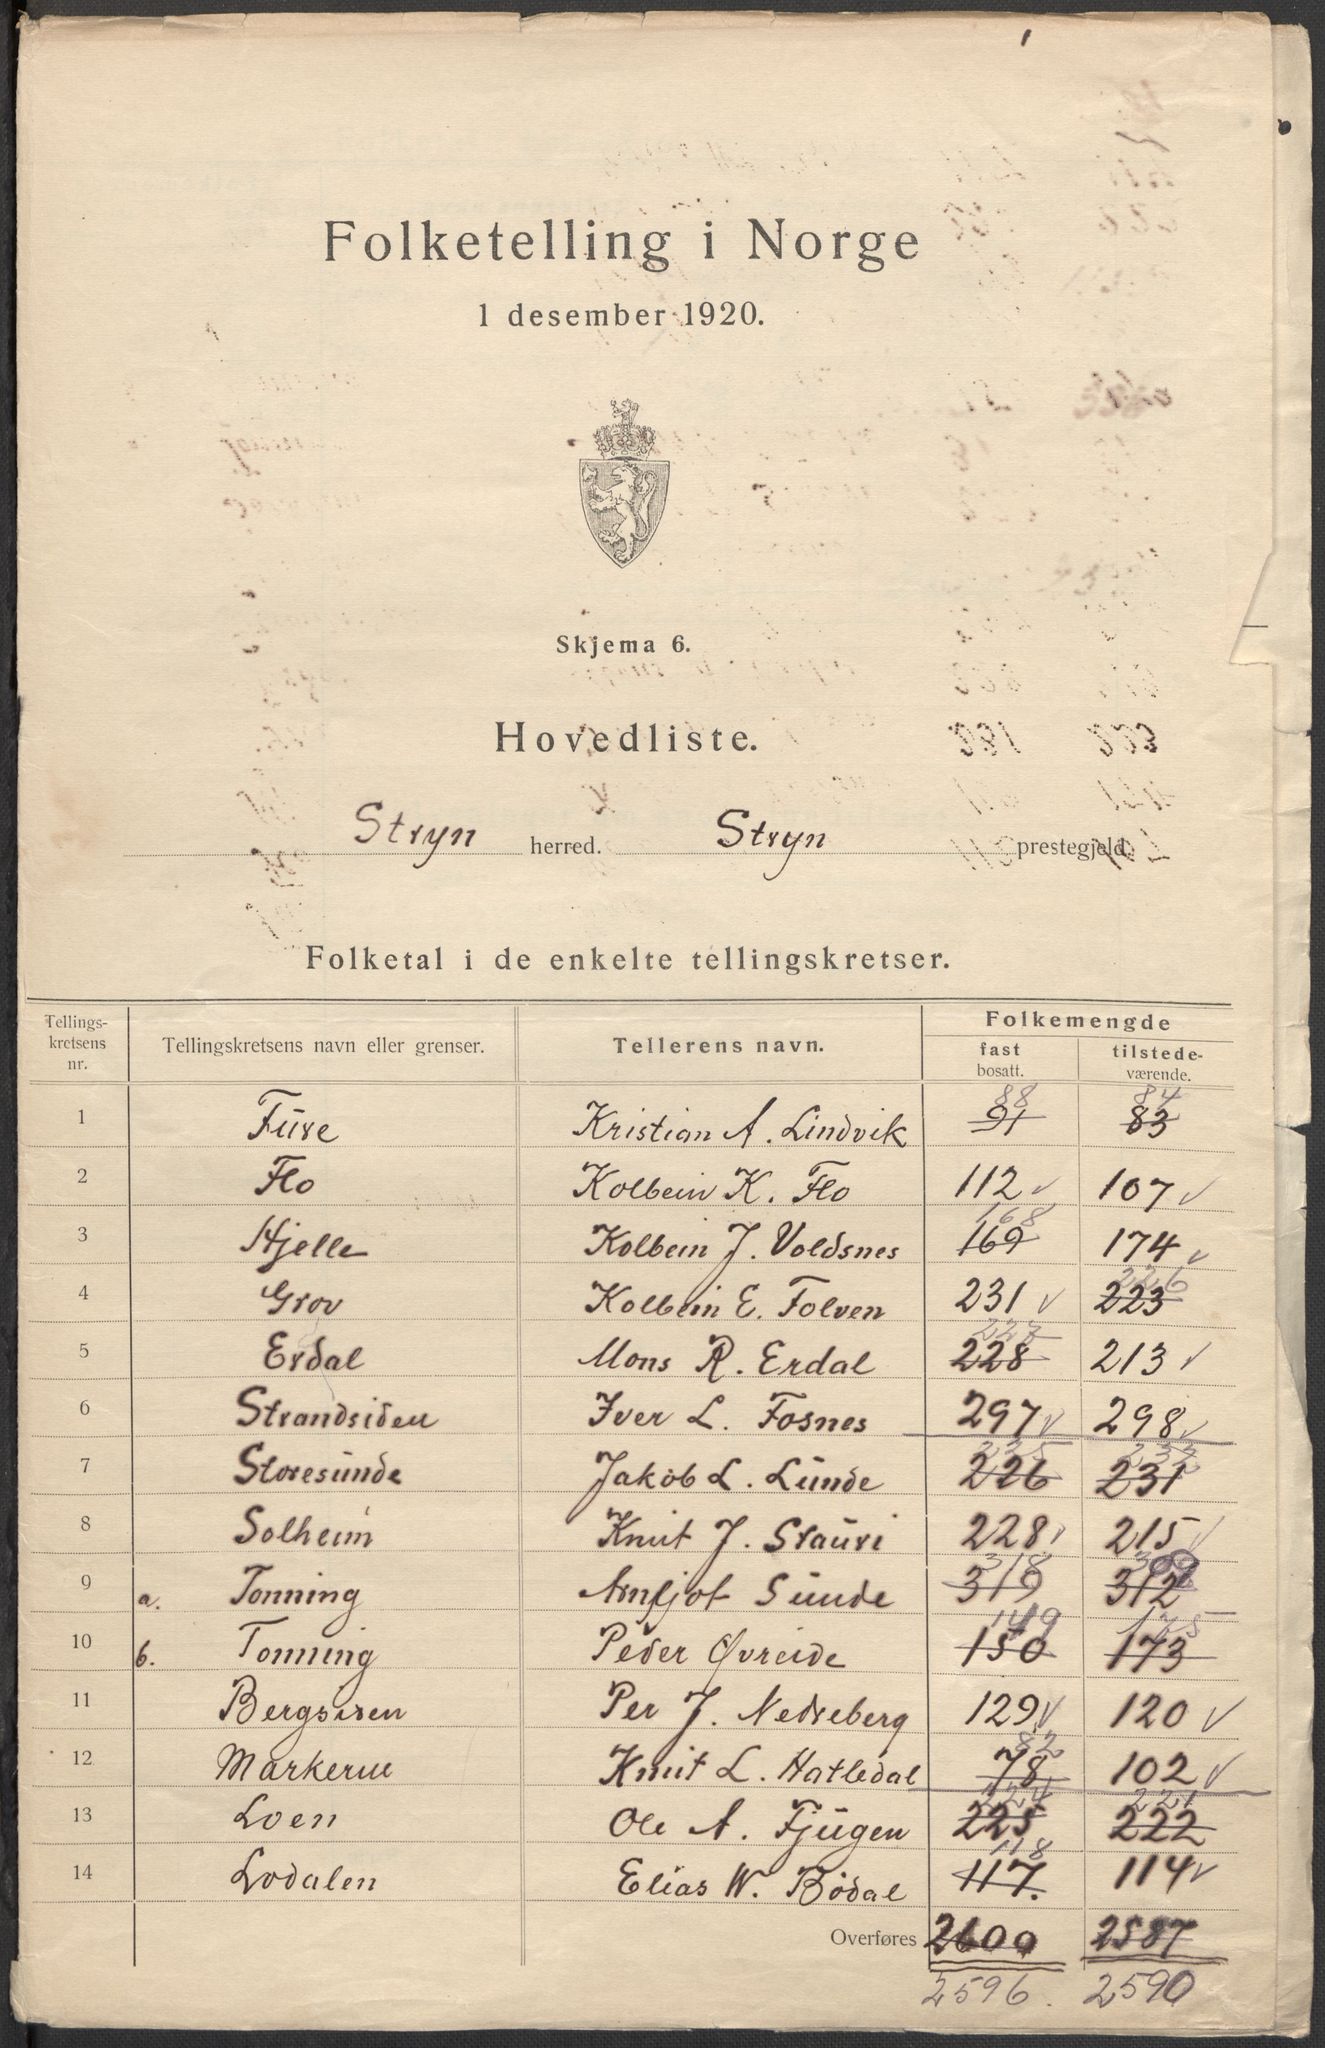 Folketelling i Norge
1 desember 1920.
Skjema 6.
Hovedliste.
Stryn herred. Stryn prestegjeld.
Folketal i de enkelte tellingskretser.
Tellings-kretsens nr. Tellingskretsens navn eller grenser. Tellerens navn. Folkemengde
fast bosatt. tilstede-værende.
88 84
1 Fure Kristian A. Lindvik 91 83
2 Flo Kolbein K. Flo 112 107
168
3 Hjelle Kolbein J. Voldsnes 169 174
226
4 Grov Kolbein E. Folven 231 223
227
5 Erdal Mons R. Erdal 228 213
6 Strandsiden Iver L. Fosnes 297 298
225 232
7 Storesunde Jakob L. Lunde 226 231
8 Solheim Knut J. Stauri 228 215
318 309
9 a. Tonning Arnfjot Sunde 319 312
149 175
10 b. Tonning Peder Øvreide 150 173
11 Bergsiden Per J. Nedreberg 129 120
82
12 Markerne Knut L. Hatledal 78 102
224 221
13 Loen Ole A. Fjugen 225 222
118
14 Lodalen Elias W. Bödal 117. 114
Overføres 2600 2587
2596. 2590